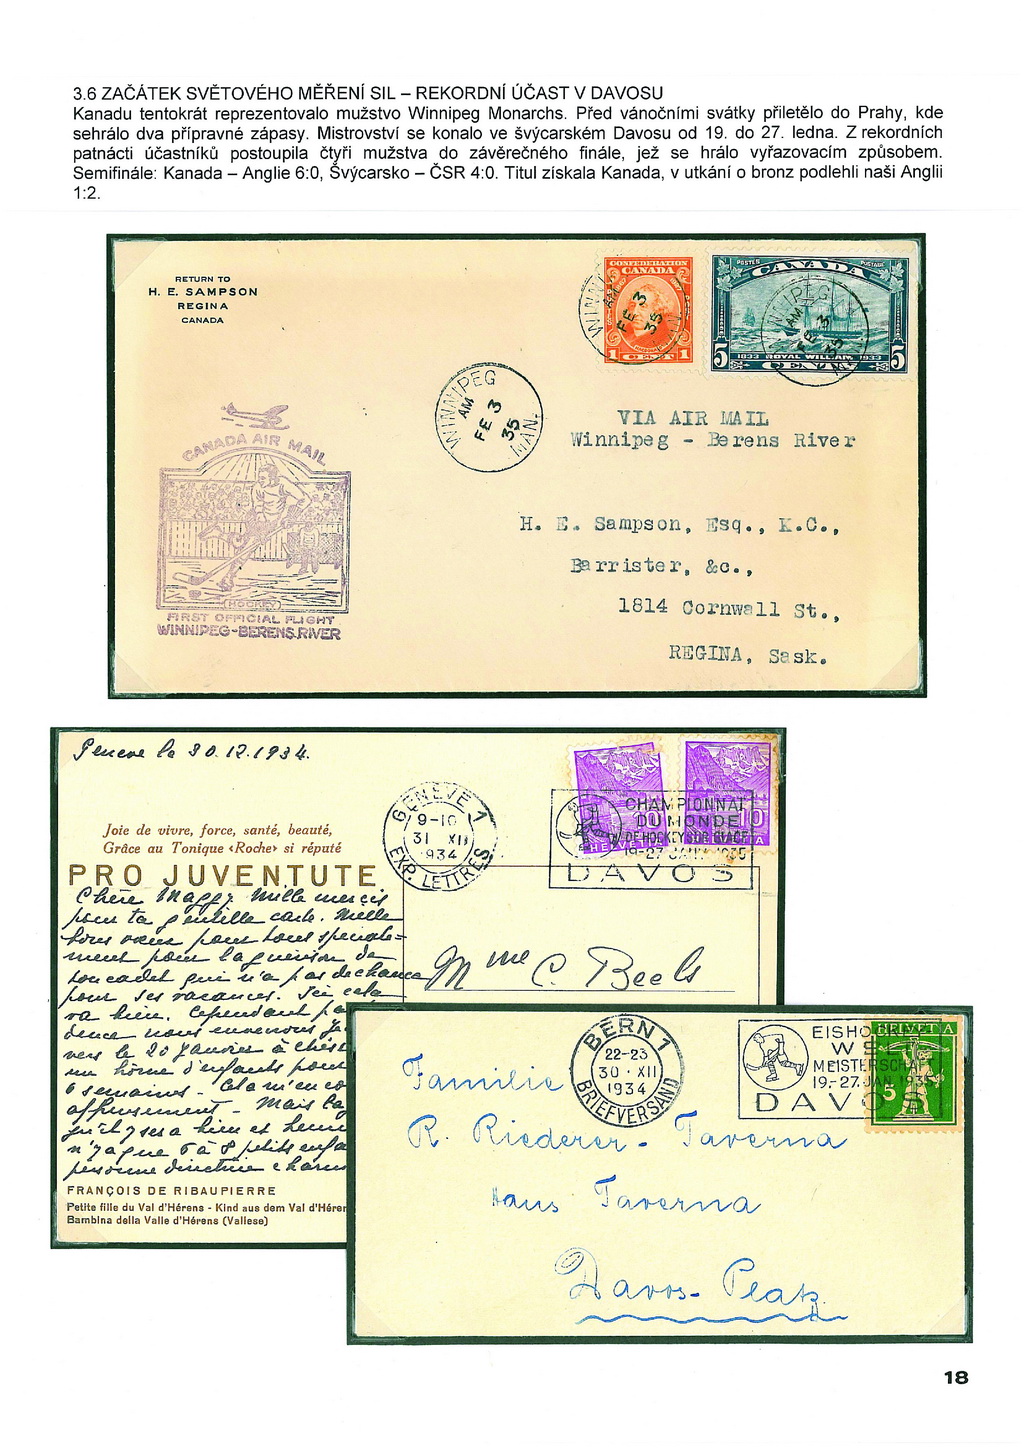 3.6 ZAČÁTEK SVĚTOVÉHO MĚŘENÍ SIL – REKORDNÍ ÚČAST V DAVOSU
Kanadu tentokrát reprezentovalo mužstvo Winnipeg Monarchs. Před vánočními svátky přiletělo do Prahy, kde
sehrálo dva přípravné zápasy. Mistrovství se konalo ve švýcarském Davosu od 19. do 27. ledna. Z rekordních
patnácti účastníků postoupila čtyři mužstva do závěrečného finále, jež se hrálo vyřazovacím způsobem.
Semifinále: Kanada – Anglie 6:0, Švýcarsko – ČSR 4:0. Titul získala Kanada, v utkání o bronz podlehli naši Anglii
1:2.
RETURN TO
H. E. SAMPSON
REGINA
CANADA
CONFEDERATION
CANADA
1 CENT 1
POSTES CANADA POSTAGE
1833 ROYAL WILLIAM 1933
5 CENTS 5
WINNIPEG
AM
FE 3
35
MAN.
VIA AIR MAIL
Winnipeg - Berens River
CANADA AIR MAIL
HOCKEY
FIRST OFFICIAL FLIGHT
WINNIPEG-BERENS RIVER
H. E. Sampson, Esq., K.C.,
Barrister, &c.,
1814 Cornwall St.,
REGINA, Sask.
Genève le 30.12.1934.
GENÈVE 1
9-10
31 XII
1934
EXP. LETTRES
CHAMPIONNAT
DU MONDE
DE HOCKEY SUR GLACE
19-27 JANV. 1935
DAVOS
HELVETIA
Joie de vivre, force, santé, beauté,
Grâce au Tonique «Roche» si réputé
PRO JUVENTUTE
Chère Maggy. Mille mercis
pour ta gentille carte. Mille
bons vœux pour tous spéciale=
ment pour la guérison de
ton cadet qui n'a pas de chance
pour ses vacances. Ici cela
va bien. Cependant
vers le 20 Janvier à
un home d'enfants pour
6 semaines. Cela
Mais
n'y a que 6 à 8 petits
personne directrice
Mme C. Beels
FRANÇOIS DE RIBAUPIERRE
Petite fille du Val d'Hérens - Kind aus dem Val d'Héren
Bambina della Valle d'Hérens (Vallese)
BERN 1
22-23
30·XII
1934
BRIEFVERSAND
EISHOCKEY
WELT
MEISTERSCHAFT
19.-27. JAN. 1935
DAVOS
HELVETIA
5
Familie
R. Riederer - Taverna
Haus Taverna
Davos-Platz.
18